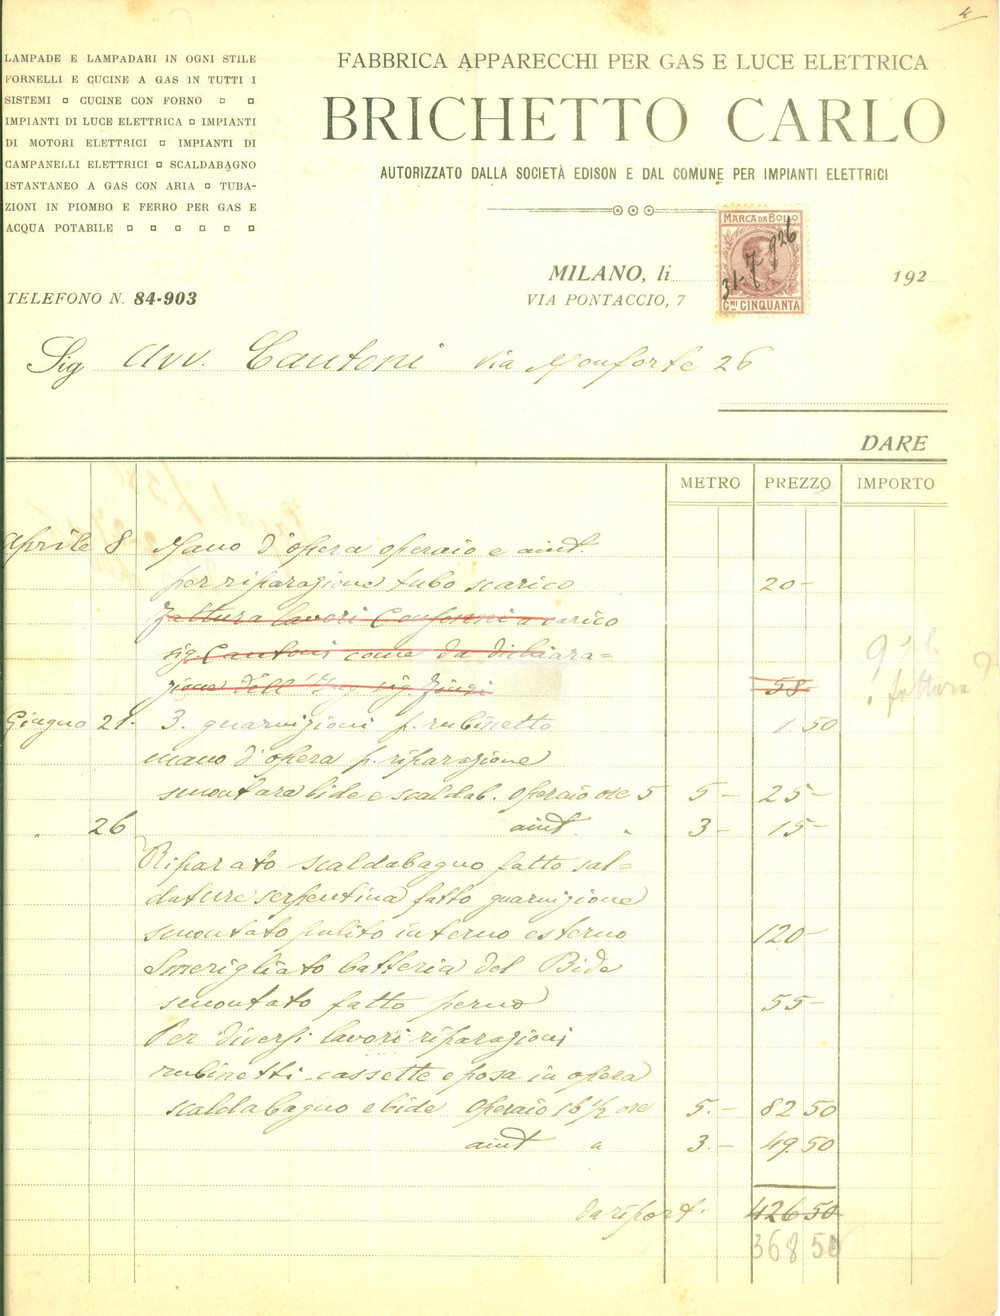 4
LAMPADE E LAMPADARI IN OGNI STILE
FORNELLI E CUCINE A GAS IN TUTTI I
SISTEMI ¤ CUCINE CON FORNO ¤ ¤
IMPIANTI DI LUCE ELETTRICA ¤ IMPIANTI
DI MOTORI ELETTRICI ¤ IMPIANTI DI
CAMPANELLI ELETTRICI ¤ SCALDABAGNO
ISTANTANEO A GAS CON ARIA ¤ TUBA-
ZIONI IN PIOMBO E FERRO PER GAS E
ACQUA POTABILE ¤ ¤ ¤ ¤ ¤ ¤
TELEFONO N. 84-903
FABBRICA APPARECCHI PER GAS E LUCE ELETTRICA
BRICHETTO CARLO
AUTORIZZATO DALLA SOCIETÀ EDISON E DAL COMUNE PER IMPIANTI ELETTRICI
MARCA DA BOLLO
31-7-926
CMI CINQUANTA
MILANO, li 192
VIA PONTACCIO, 7
Sig Avv. Cantoni Via Monforte 26
DARE
METRO PREZZO IMPORTO
Aprile 8 Mano d'opera operaio e aiut.
per riparazione tubo scarico 20-
fattura lavori Confonni a carico
sig. Cantoni come da dichiara=
zione dell'Ing. sig. 58-
fattura
Giugno 21. 3. guarnizioni p. rubinetto 1.50
mano d'opera p. riparazione
smontara bide e scaldab. operaio ore 5 5- 25-
" 26 aiut " 3- 15-
Riparato scaldabagno fatto sal=
dature serpentina fatto guarnizione
smontato pulito interno esterno 120-
Smerigliato batteria del Bide
smontato fatto perno 55-
Per diversi lavori riparazioni
rubinetti cassette e posa in opera
scaldabagno e bide operaio 16 1/2 ore 5.- 82 50
aiut " 3.- 49.50
da riport. 426 50
368 50